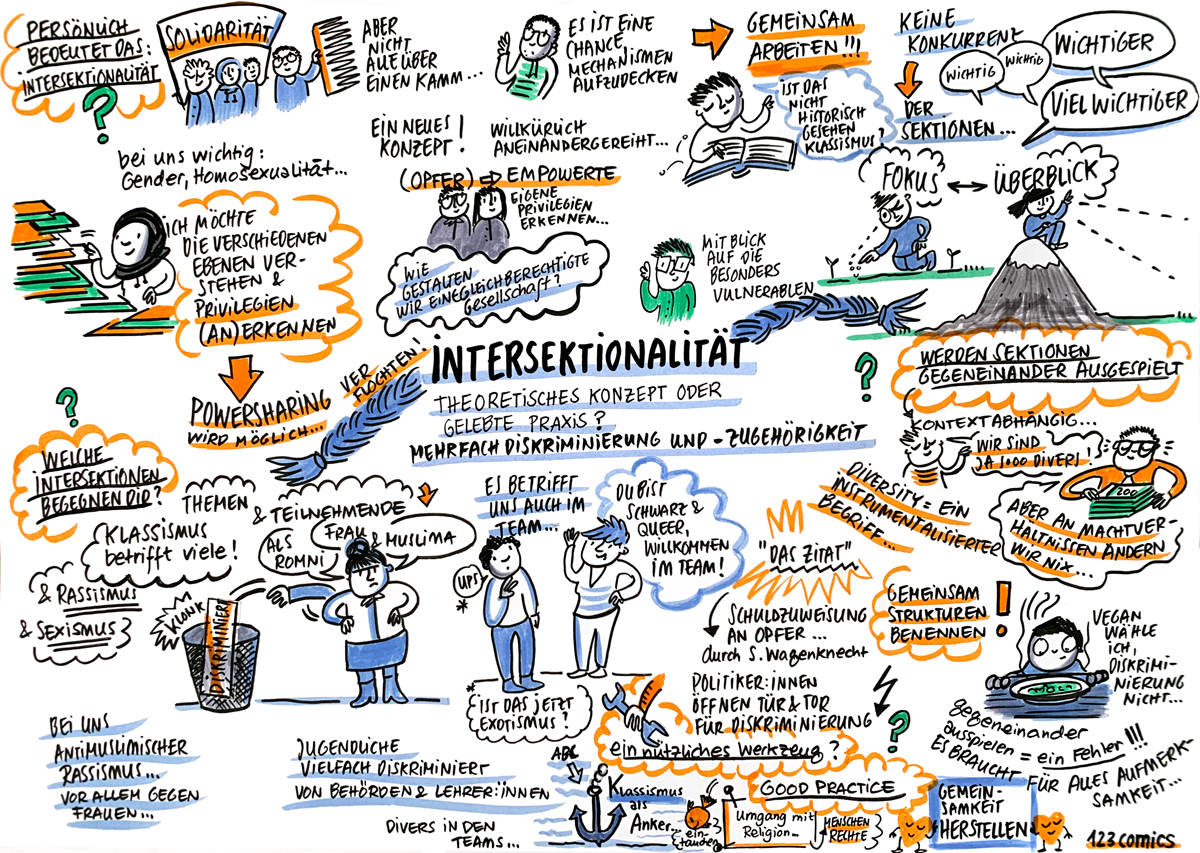 PERSÖNLICH
BEDEUTET DAS:
INTERSEKTIONALITÄT
?
SOLIDARITÄT
ABER
NICHT
ALLE ÜBER
EINEN KAMM...
ES IST EINE
CHANCE,
MECHANISMEN
AUFZUDECKEN
GEMEINSAM
ARBEITEN!!!
IST DAS
NICHT
HISTORISCH
GESEHEN
KLASSISMUS?
KEINE
KONKURRENZ
DER
SEKTIONEN...
WICHTIG
WICHTIG
WICHTIGER
VIEL WICHTIGER
bei uns wichtig:
Gender, Homosexualität...
EIN NEUES
KONZEPT!
WILLKÜRLICH
ANEINANDERGEREIHT...
(OPFER) ⇨ EMPOWERTE
EIGENE
PRIVILEGIEN
ERKENNEN...
WIE
GESTALTEN
WIR EINE GLEICHBERECHTIGTE
GESELLSCHAFT?
FOKUS ↔ ÜBERBLICK
ICH MÖCHTE
DIE VERSCHIEDENEN
EBENEN VER-
STEHEN &
PRIVILEGIEN
(AN)ERKENNEN
MIT BLICK
AUF DIE
BESONDERS
VULNERABLEN
POWERSHARING
WIRD MÖGLICH...
VER
FLOCHTEN!
INTERSEKTIONALITÄT
THEORETISCHES KONZEPT ODER
GELEBTE PRAXIS?
MEHRFACH DISKRIMINIERUNG UND -ZUGEHÖRIGKEIT
?
WERDEN SEKTIONEN
GEGENEINANDER AUSGESPIELT
KONTEXTABHÄNGIG...
WIR SIND
JA SOOO DIVERS!
200
ABER AN MACHTVER-
HÄLTNISSEN ÄNDERN
WIR NIX...
DIVERSITY = EIN
INSTRUMENTALISIERTER
BEGRIFF...
?
WELCHE
INTERSEKTIONEN
BEGEGNEN DIR?
THEMEN
& TEILNEHMENDE
KLASSISMUS
betrifft viele!
& RASSISMUS
& SEXISMUS
ALS
ROMNI
FRAU & MUSLIMA
KLONK
DISKRIMINIERT
ES BETRIFFT
UNS AUCH IM
TEAM...
UPS!
*
DU BIST
SCHWARZ &
QUEER,
WILLKOMMEN
IM TEAM!
* IST DAS JETZT
EXOTISMUS?
"DAS ZITAT"
SCHULDZUWEISUNG
AN OPFER...
durch S. Wagenknecht
POLITIKER:INNEN
ÖFFNEN TÜR & TOR
FÜR DISKRIMINIERUNG
GEMEINSAM
STRUKTUREN
BENENNEN!
VEGAN
WÄHLE
ICH,
DISKRIMI-
NIERUNG
NICHT...
gegeneinander
ausspielen = ein Fehler!!!
ES BRAUCHT FÜR ALLES AUFMERK-
SAMKEIT...
BEI UNS
ANTIMUSLIMISCHER
RASSISMUS...
VOR ALLEM GEGEN
FRAUEN...
JUGENDLICHE
VIELFACH DISKRIMINIERT
VON BEHÖRDEN & LEHRER:INNEN
DIVERS IN DEN
TEAMS...
ein nützliches Werkzeug?
?
ABC
Klassismus
als
Anker...
ein-
tauchen
GOOD PRACTICE
Umgang mit
Religion...
MENSCHEN
RECHTE
GEMEIN-
SAMKEIT
HERSTELLEN
123comics